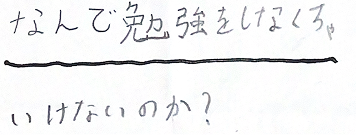 なんで勉強をしなくちゃ
いけないのか?